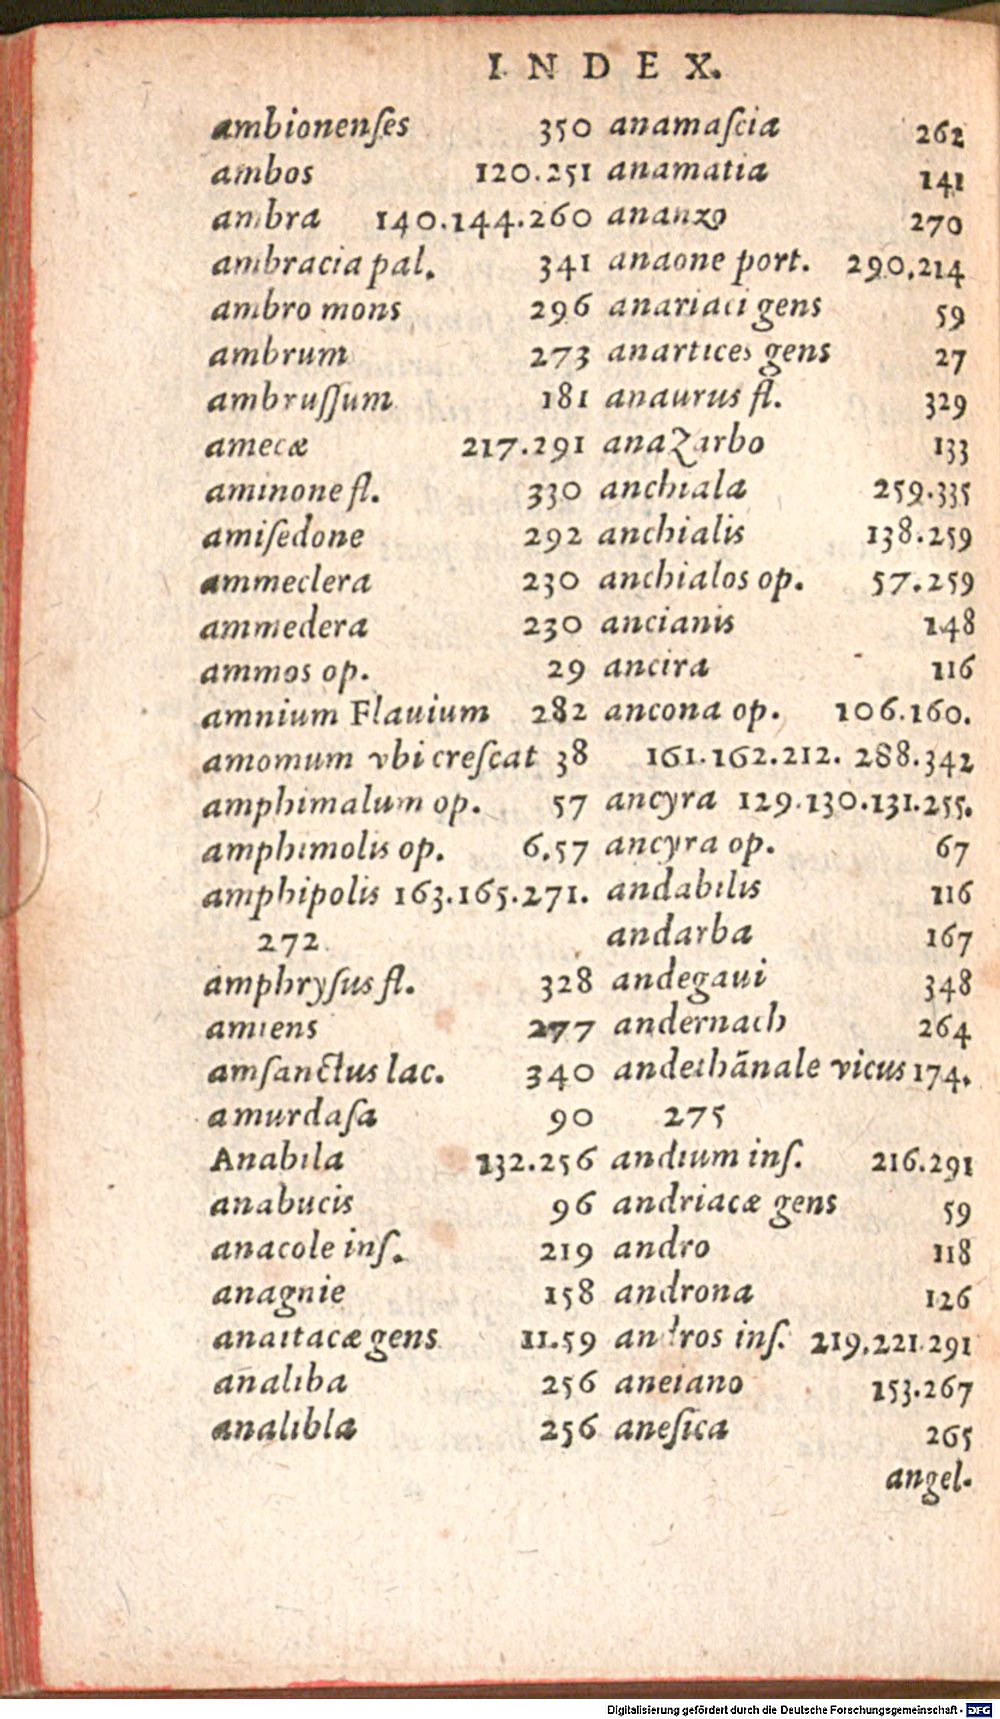 INDEX.
ambionenſes 350
ambos 120.251
ambra 140.144.260
ambracia pal. 341
ambro mons 296
ambrum 273
ambruſſum 181
amecæ 217.291
aminone fl. 330
amiſedone 292
ammeclera 230
ammedera 230
ammos op. 29
amnium Flauium 282
amomum vbi creſcat 38
amphimalum op. 57
amphimolis op. 6.57
amphipolis 163.165.271.
272
amphryſus fl. 328
amiens 277
amſanctus lac. 340
amurdaſa 90
Anabila 132.256
anabucis 96
anacole inſ. 219
anagnie 158
anaitacæ gens 11.59
analiba 256
analibla 256
anamaſcia 262
anamatia 141
ananzo 270
anaone port. 290.214
anariaci gens 59
anartices gens 27
anaurus fl. 329
anaZarbo 133
anchiala 259.335
anchialis 138.259
anchialos op. 57.259
ancianis 148
ancira 116
ancona op. 106.160.
161.162.212. 288.342
ancyra 129.130.131.255.
ancyra op. 67
andabilis 116
andarba 167
andegaui 348
andernach 264
andethãnale vicus 174.
275
andium inſ. 216.291
andriacæ gens 59
andro 118
androna 126
andros inſ. 219.221.291
aneiano 153.267
aneſica 265
angel.
Digitalisierung gefördert durch die Deutsche Forschungsgemeinschaft - DFG